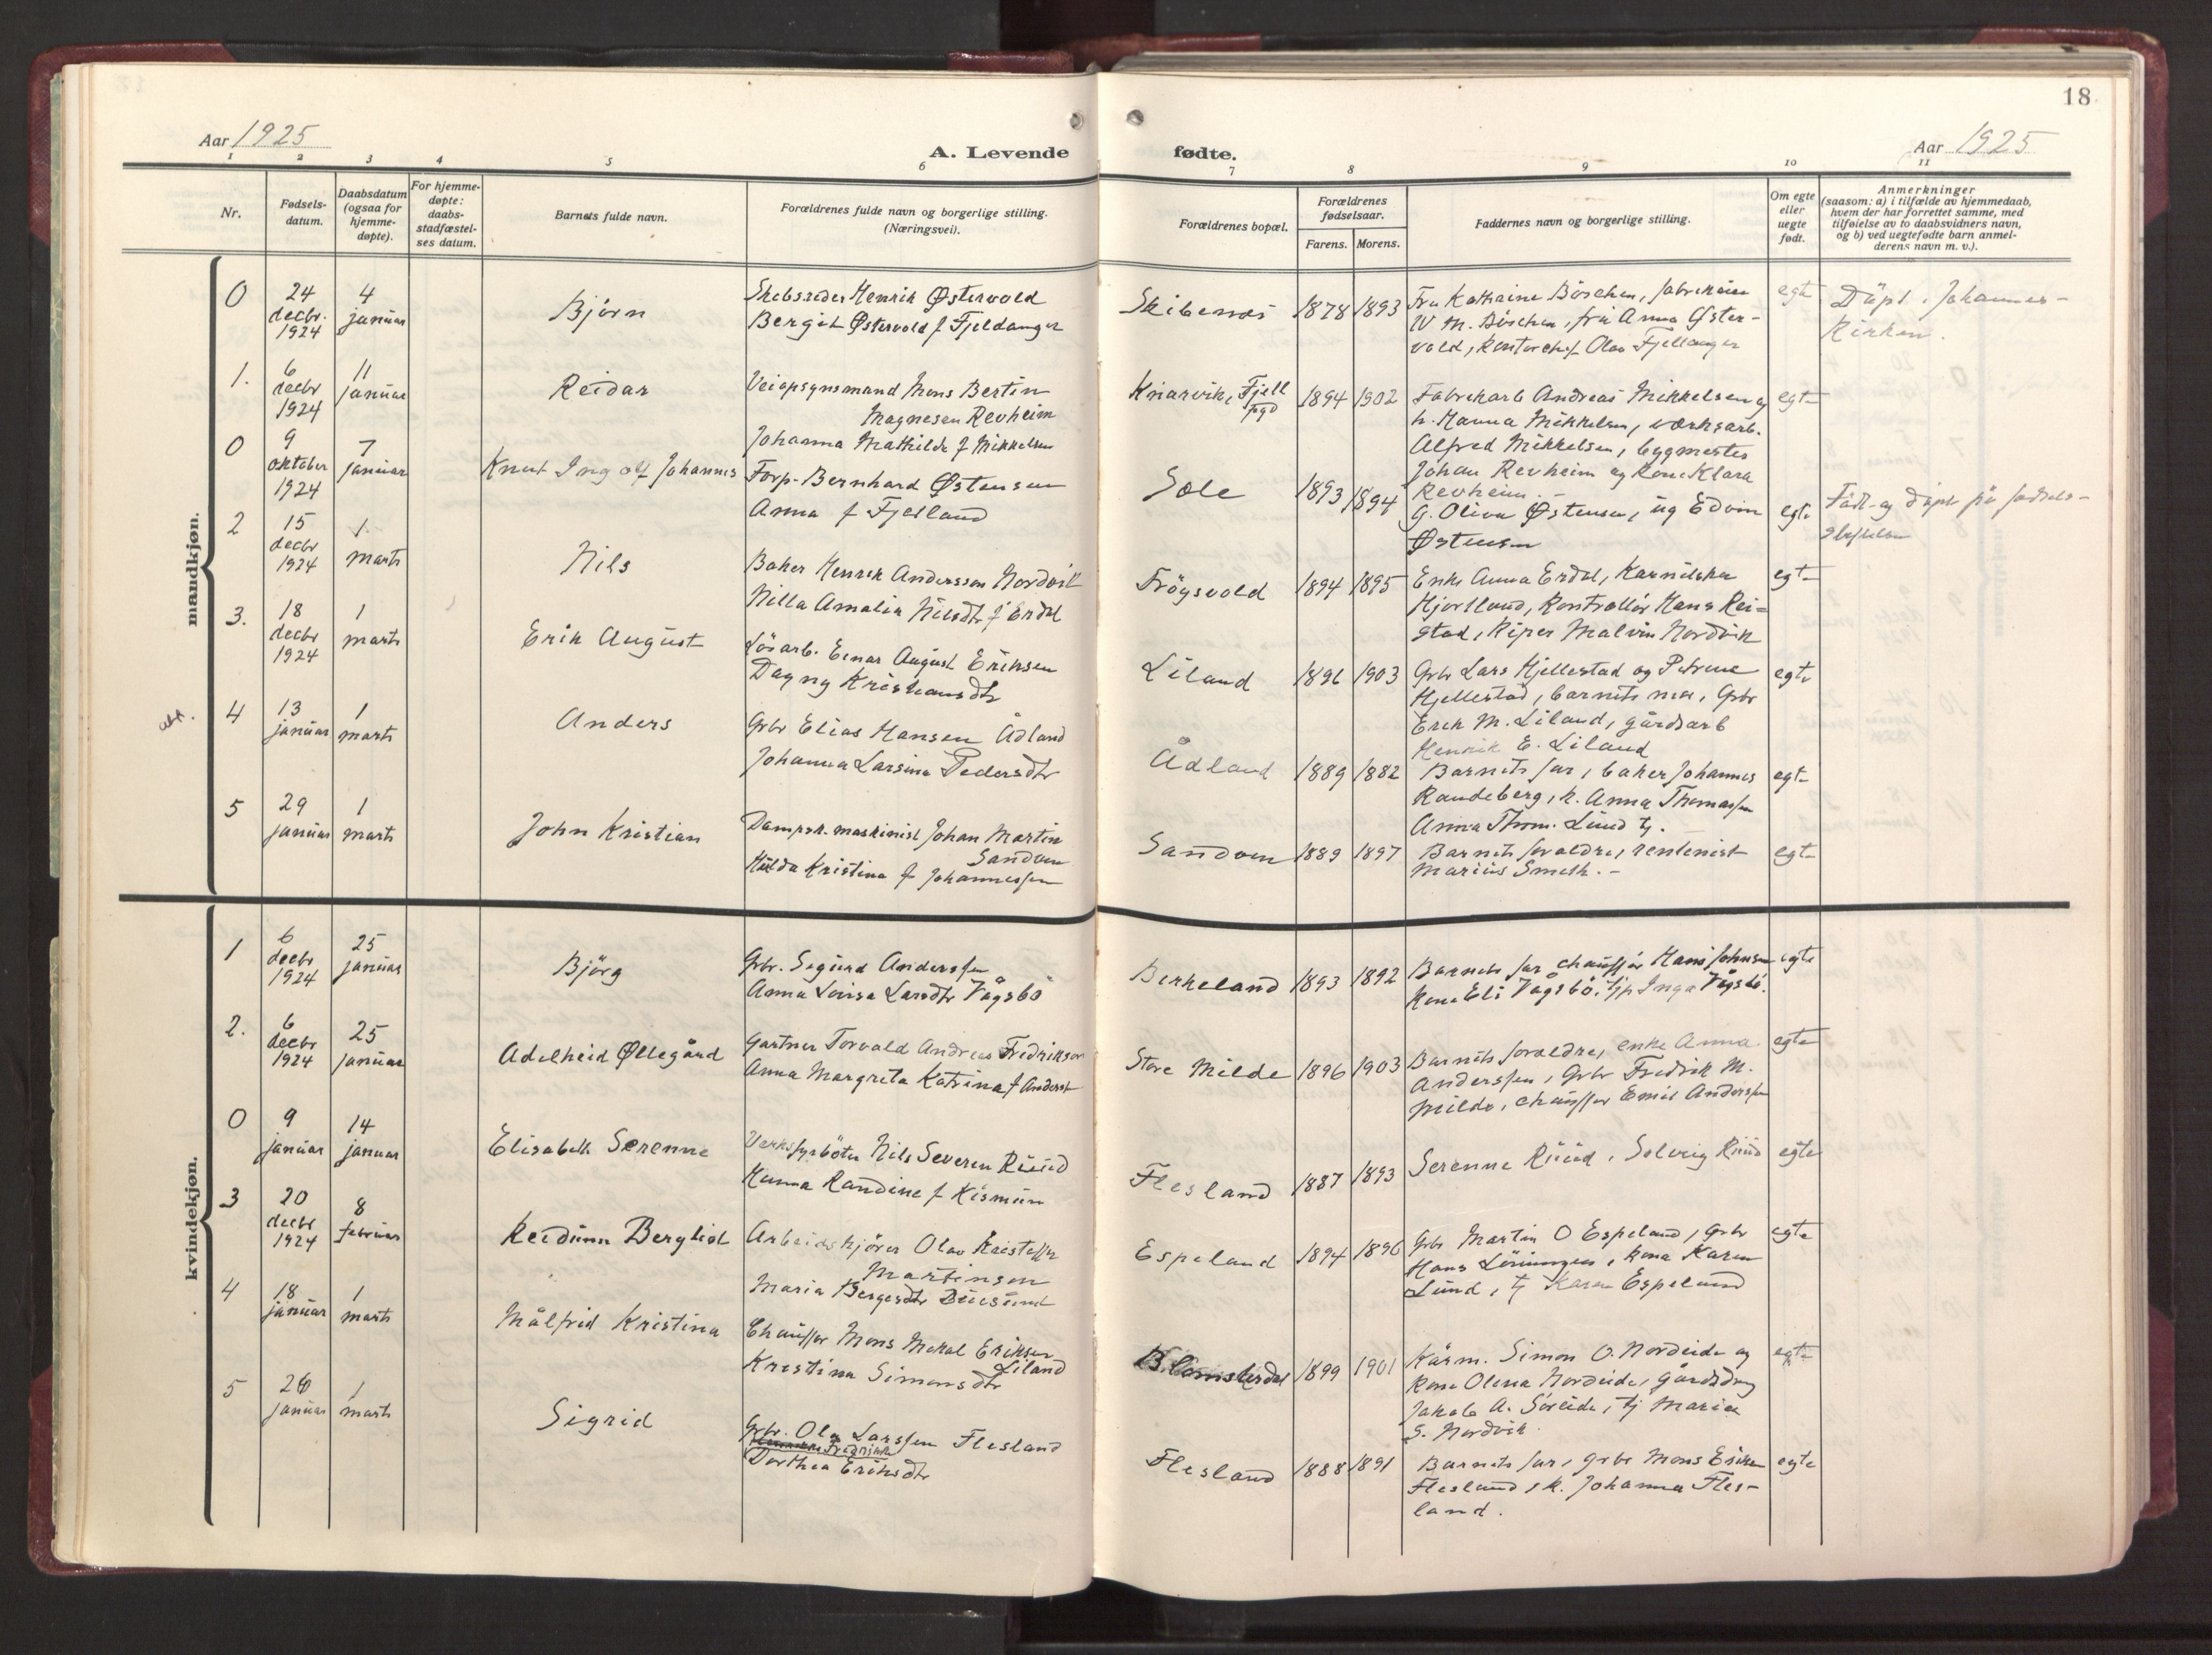 18
Aar 1925
A. Levende
fødte.
Aar 1925
1 2 3 4 5 6 7 8 9 10 11
Nr.
Fødsels-
datum.
Daabsdatum
(ogsaa for
hjemme-
døpte).
For hjemme-
døpte:
daabs-
stadfæstel-
ses datum.
Barnets fulde navn.
Forældrenes fulde navn og borgerlige stilling.
(Næringsvei).
Forældrenes bopæl.
Forældrenes
fødselsaar.
Farens. Morens.
Faddernes navn og borgerlige stilling.
Om egte
eller
uegte
født.
Anmerkninger
(saasom: a) i tilfælde av hjemmedaab,
hvem der har forrettet samme, med
tilføielse av to daabsvidners navn,
og b) ved uegtefødte barn anmel-
derens navn m. v.).
mandkjøn.
0
24
decbr.
1924
4
januar
Bjørn
Skibsreder Henrik Østervold
Bergit Østervold f Fjeldanger
Skibenes
1878 1893
Fru Kathrine Böschen, fabrikeier
W M. Böschen, fru Anna Øster-
vold, Kontorchef Olav Fjellanger
egte
Döpt i Johannes-
Kirken.
1.
6
decbr
1924
11
januar
Reidar
Veiopsynsmand Mons Bertin
Magnesen Revheim
Johanna Mathilde f Mikkelsen
Knarvik, Fjell
pgd
1894 1902
Fabrikarb Andreas Mikkelsen og
h. Hanna Mikkelsen, værksarb.
Alfred Mikkelsen, bygmester
Johan Revheim og Kone Klara
Revheim.
egte
0
9
oktober
1924
7
januar
Knut Ingolf Johannes
Forp. Bernhard Østensen
Anna f Fjelland
Søle
1893 1894
G. Oliva Østensen, ug Edvin
Østensen
egte
Födt og döpt på födsels-
2
15
decbr
1924
1
marts
Nils
Baker Henrik Anderssen Nordvik
Nilla Amalia Nilsdtr f Erdal
Frögsvold
1894 1895
Enke Anna Erdal,
Hjortland, Kontrollör Hans Rei-
stad, Riper Malvin Nordvik
egte
3.
18
decbr
1924
1
marts
Erik August
Lösarb. Einar August Eriksen
Dagny Kristiansdtr
Liland
1896 1903
Grbr Lars Hjellestad og Petrine
Hjellestad, barnets mor, Grbr
Erik M. Liland, gårdsarb
Henrik E. Liland
egte
4
13
januar
1
marts
Anders
Grbr Elias Hansen Ådland
Johanna Larsine Pedersdtr
Ådland
1889 1882
Barnets far, baker Johannes
Randeberg, k. Anna Thomassen
Anna Thom. Lund tj.
egte
5
29
januar
1
marts
John Kristian
Dampsk. maskinist Johan Martin
Sandven
Hulda Kristina f Johannessen
Sandven
1889 1897
Barnets foraldre, rentenist
Marius Smith.
egte
kvindekjøn.
1
6
decbr
1924
25
januar
Björg
Grbr. Sigurd Anderssen
Anna Lovisa Larsdtr Vågsbö
Birkeland
1893 1892
Barnets far chaufför Hans Johnsen
Kona Eli Vågsbö, tjp Inga Vågsbö.
egte
2.
6
decbr
1924
25
januar
Adelheid Øllegård
Gartner Torvald Andreas Fredriksen
Anna Margreta Katrina f Anderss
Store Milde
1896 1903
Barnets foraldre, enke Anna
Anderssen, Grbr Fredrik M.
Milde, chauffør Emil Anderssen
egte
0
9
januar
14
januar
Elisabeth Serenne
Verksfyrböter Nils Severin Ruud
Hanna Randine f Rismun
Flesland
1887 1893
Serenne Ruud, Solveig Ruud
egte
3
20
decbr
1924
8
februar
Reidunn Bergliot
Arbeidskjörer Olav Kristoffer
Martinsen
Maria Bergesdtr
Espeland
1894 1896
Grbr Martin O Espeland, Grbr
Hans Löningen, Kona Karen
Lund, tj Karen Espeland
egte
4
18
januar
1
marts
Målfrid Kristina
Chauffør Mons Mikal Eriksen
Liland
Kristina Simonsdtr
Blomsterdal
1899 1901
Kårm. Simon O. Nordeide og
Kone Olena Nordeide, gårdsdrg
Jakob A. Söreide, tj Maria
S. Nordvik
egte
5
26
januar
1
marts
Sigrid
Grbr. Ola Larssen Flesland
Fredrikke
Dorthea Eriksdtr
Flesland
1888 1891
Barnets far, grbr Mons Eriksen
Flesland, k. Johanna Fles-
land.
egte